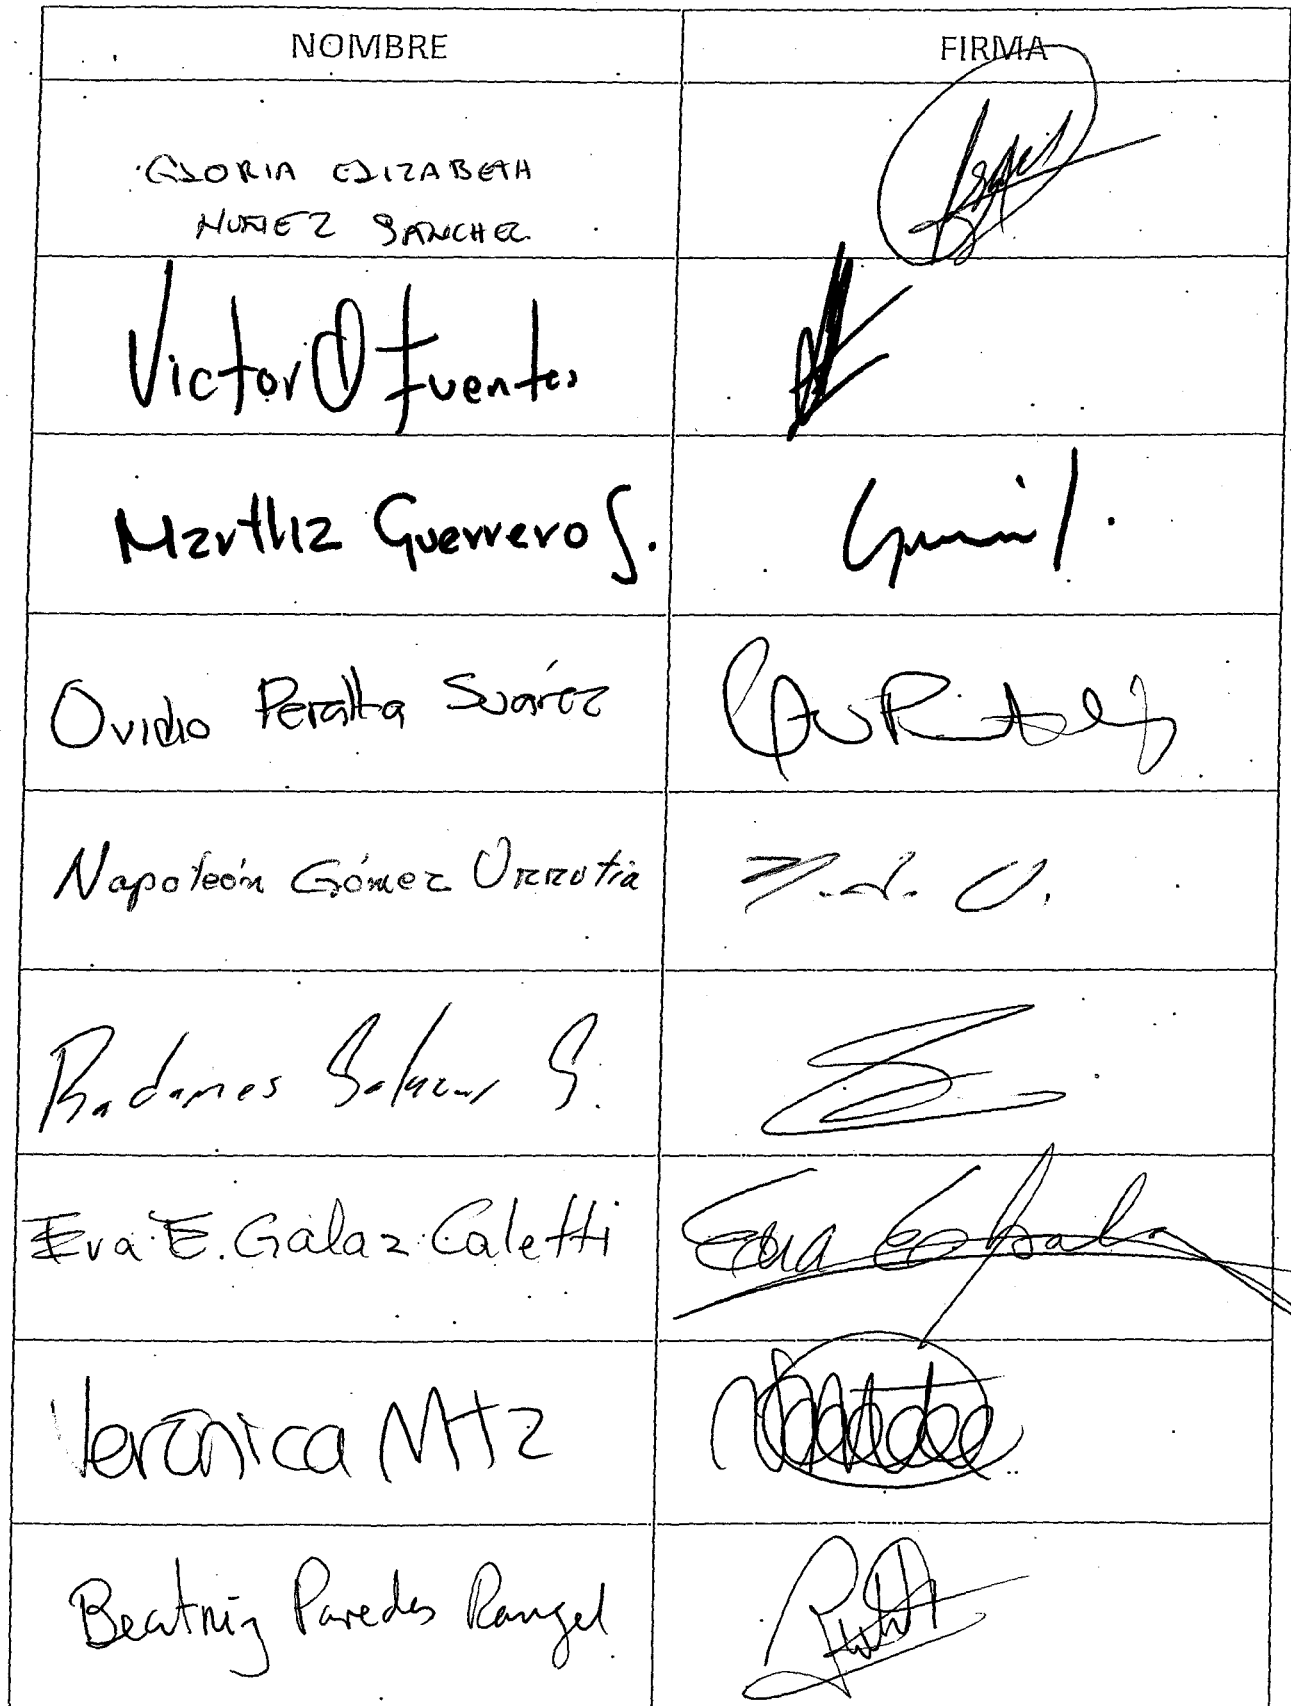 NOMBRE FIRMA
GLORIA ELIZABETH
NUÑEZ SANCHEZ
Victor O Fuentes
Martha Guerrero S.
Ovidio Peralta Suárez
Napoleón Gómez Urrutia
N.G.U.
Radames Salazar S.
Eva E. Galaz Caletti
Eva
Verónica Mtz
Beatriz Paredes Rangel